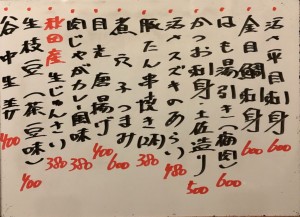 活〆平目刺身 600
金目鯛刺身 600
はも湯引き(梅肉) 600
かつお刺身・土佐造り 500
活スズキのあらい 480
豚たん串焼き(2本) 380
煮穴子つまみ 600
目光唐揚げ 400
肉じゃがカレー風味 380
秋田産生じゅんさい 380
生枝豆(茶豆味) 400
谷中生姜 400